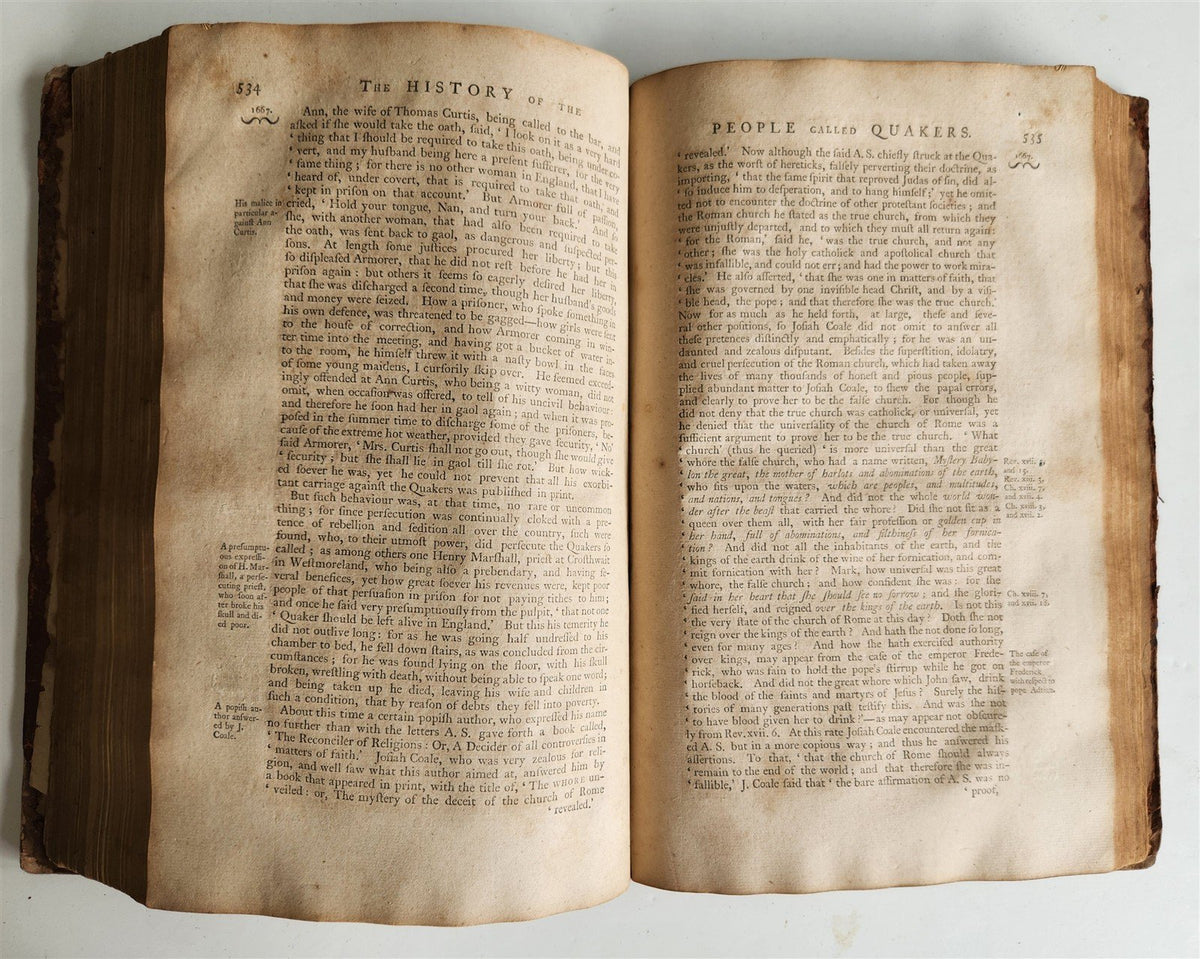 534
THE HISTORY OF THE
1667.
Ann, the wife of Thomas Curtis, being called to the bar, and
aſked if ſhe would take the oath, ſaid, ‘ I look on it as a very hard
‘ thing that I ſhould be required to take this oath, being under co-
‘ vert, and my huſband being here a preſent ſufferer, for the very
‘ ſame thing ; for there is no other woman in England, that I have
‘ heard of, under covert, that is required to take that oath, and
‘ kept in priſon on that account.’ But Armorer full of paſſion,
cried, ‘ Hold your tongue, Nan, and turn your back.’ And ſo
ſhe, with another woman, that had alſo been required to take
the oath, was ſent back to gaol, as dangerous and ſuſpected per-
ſons. At length ſome juſtices procured her liberty ; but this
ſo diſpleaſed Armorer, that he did not reſt before he had her in
priſon again : but others it ſeems ſo eagerly deſired her liberty,
that ſhe was diſcharged a ſecond time, though her huſband's goods
and money were ſeized. How a priſoner, who ſpoke ſomething in
his own defence, was threatened to be gagged—how girls were ſent
to the houſe of correction, and how Armorer coming in win-
ter time into the meeting, and having got a bucket of water in-
to the room, he himſelf threw it with a naſty bowl in the faces
of ſome young maidens, I curſorily ſkip over. He ſeemed exceed-
ingly offended at Ann Curtis, who being a witty woman, did not
omit, when occaſion was offered, to tell of his uncivil behaviour :
and therefore he ſoon had her in gaol again ; and when it was pro-
poſed in the ſummer time to diſcharge ſome of the priſoners, be-
cauſe of the extreme hot weather, provided they gave ſecurity, ‘ No’
ſaid Armorer, ‘ Mrs. Curtis ſhall not go out, though ſhe would give
‘ ſecurity ; but ſhe ſhall lie in gaol till ſhe rot.’ But how wick-
ed ſoever he was, yet he could not prevent that all his exorbi-
tant carriage againſt the Quakers was publiſhed in print.
But ſuch behaviour was, at that time, no rare or uncommon
thing ; for ſince perſecution was continually cloked with a pre-
tence of rebellion and ſedition all over the country, ſuch were
found, who, to their utmoſt power, did perſecute the Quakers ſo
called ; as among others one Henry Marſhall, prieſt at Croſthwait
in Weſtmoreland, who being alſo a prebendary, and having ſe-
veral benefices, yet how great ſoever his revenues were, kept poor
people of that perſuaſion in priſon for not paying tithes to him ;
and once he ſaid very preſumptuouſly from the pulpit, ‘ that not one
‘ Quaker ſhould be left alive in England.’ But this his temerity he
did not outlive long : for as he was going half undreſſed to his
chamber to bed, he fell down ſtairs, as was concluded from the cir-
cumſtances ; for he was found lying on the floor, with his ſkull
broken, wreſtling with death, without being able to ſpeak one word ;
and being taken up he died, leaving his wife and children in
ſuch a condition, that by reaſon of debts they fell into poverty.
About this time a certain popiſh author, who expreſſed his name
no further than with the letters A. S. gave forth a book called,
‘ The Reconciler of Religions : Or, A Decider of all controverſies in
‘ matters of faith.’ Joſiah Coale, who was very zealous for reli-
gion, and well ſaw what this author aimed at, anſwered him by
a book that appeared in print, with the title of, ‘ The WHORE un-
‘ veiled : or, The myſtery of the deceit of the church of Rome
‘ revealed.’
His malice in
particular a-
gainſt Ann
Curtis.
A preſumptu-
ous expreſſi-
on of H. Mar-
ſhall, a perſe-
cuting prieſt,
who ſoon af-
ter broke his
ſkull and di-
ed poor.
A popiſh au-
thor anſwer-
ed by J.
Coale.
PEOPLE CALLED QUAKERS.
535
1667.
‘ revealed.’ Now although the ſaid A. S. chiefly ſtruck at the Qua-
kers, as the worſt of hereticks, falſely perverting their doctrine, as
importing, ‘ that the ſame ſpirit that reproved Judas of ſin, did al-
‘ ſo induce him to deſperation, and to hang himſelf ;’ yet he omit-
ted not to encounter the doctrine of other proteſtant ſocieties ; and
the Roman church he ſtated as the true church, from which they
were unjuſtly departed, and to which they muſt all return again :
‘ for the Roman,’ ſaid he, ‘ was the true church, and not any
‘ other ; ſhe was the holy catholick and apoſtolical church that
‘ was infallible, and could not err ; and had the power to work mira-
‘ cles.’ He alſo aſſerted, ‘ that ſhe was one in matters of faith, that
‘ ſhe was governed by one inviſible head Chriſt, and by a viſi-
‘ ble head, the pope ; and that therefore ſhe was the true church.’
Now for as much as he held forth, at large, theſe and ſeve-
ral other poſitions, ſo Joſiah Coale did not omit to anſwer all
theſe pretences diſtinctly and emphatically ; for he was an un-
daunted and zealous diſputant. Beſides the ſuperſtition, idolatry,
and cruel perſecution of the Roman church, which had taken away
the lives of many thouſands of honeſt and pious people, ſup-
plied abundant matter to Joſiah Coale, to ſhew the papal errors,
and clearly to prove her to be the falſe church. For though he
did not deny that the true church was catholick, or univerſal, yet
he denied that the univerſality of the church of Rome was a
ſufficient argument to prove her to be the true church. ‘ What
‘ church’ (thus he queried) ‘ is more univerſal than the great
‘ whore the falſe church, who had a name written, Myſtery Baby-
‘ lon the great, the mother of harlots and abominations of the earth,
‘ who ſits upon the waters, which are peoples, and multitudes,
‘ and nations, and tongues ? And did not the whole world won-
‘ der after the beaſt that carried the whore ? Did ſhe not ſit as a
‘ queen over them all, with her fair profeſſion or golden cup in
‘ her hand, full of abominations, and filthineſs of her fornica-
‘ tion ? And did not all the inhabitants of the earth, and the
‘ kings of the earth drink of the wine of her fornication, and com-
‘ mit fornication with her ? Mark, how univerſal was this great
‘ whore, the falſe church ; and how confident ſhe was : for ſhe
‘ ſaid in her heart that ſhe ſhould ſee no ſorrow ; and ſhe glori-
‘ fied herſelf, and reigned over the kings of the earth. Is not this
‘ the very ſtate of the church of Rome at this day ? Doth ſhe not
‘ reign over the kings of the earth ? And hath ſhe not done ſo long,
‘ even for many ages ? And how ſhe hath exerciſed authority
‘ over kings, may appear from the caſe of the emperor Frede-
‘ rick, who was fain to hold the pope's ſtirrup while he got on
‘ horſeback. And did not the great whore which John ſaw, drink
‘ the blood of the ſaints and martyrs of Jeſus ? Surely the hiſ-
‘ tories of many generations paſt teſtify this. And was ſhe not
‘ to have blood given her to drink ?’—as may appear not obſcure-
ly from Rev. xvii. 6. At this rate Joſiah Coale encountered the maſk-
ed A. S. but in a more copious way ; and thus he anſwered his
aſſertions. To that, ‘ that the church of Rome ſhould always
‘ remain to the end of the world ; and that therefore ſhe was in-
‘ fallible,’ J. Coale ſaid that ‘ the bare affirmation of A. S. was no
‘ proof,
Rev. xvii. 5,
and 15.
Rev. xiii. 3,
Ch. xviii. 7,
and xvii. 4.
Ch. xviii. 3,
and xvii. 2.
Ch. xviii. 7,
and xvii. 18.
The caſe of
the emperor
Frederick
with reſpect to
pope Adrian.